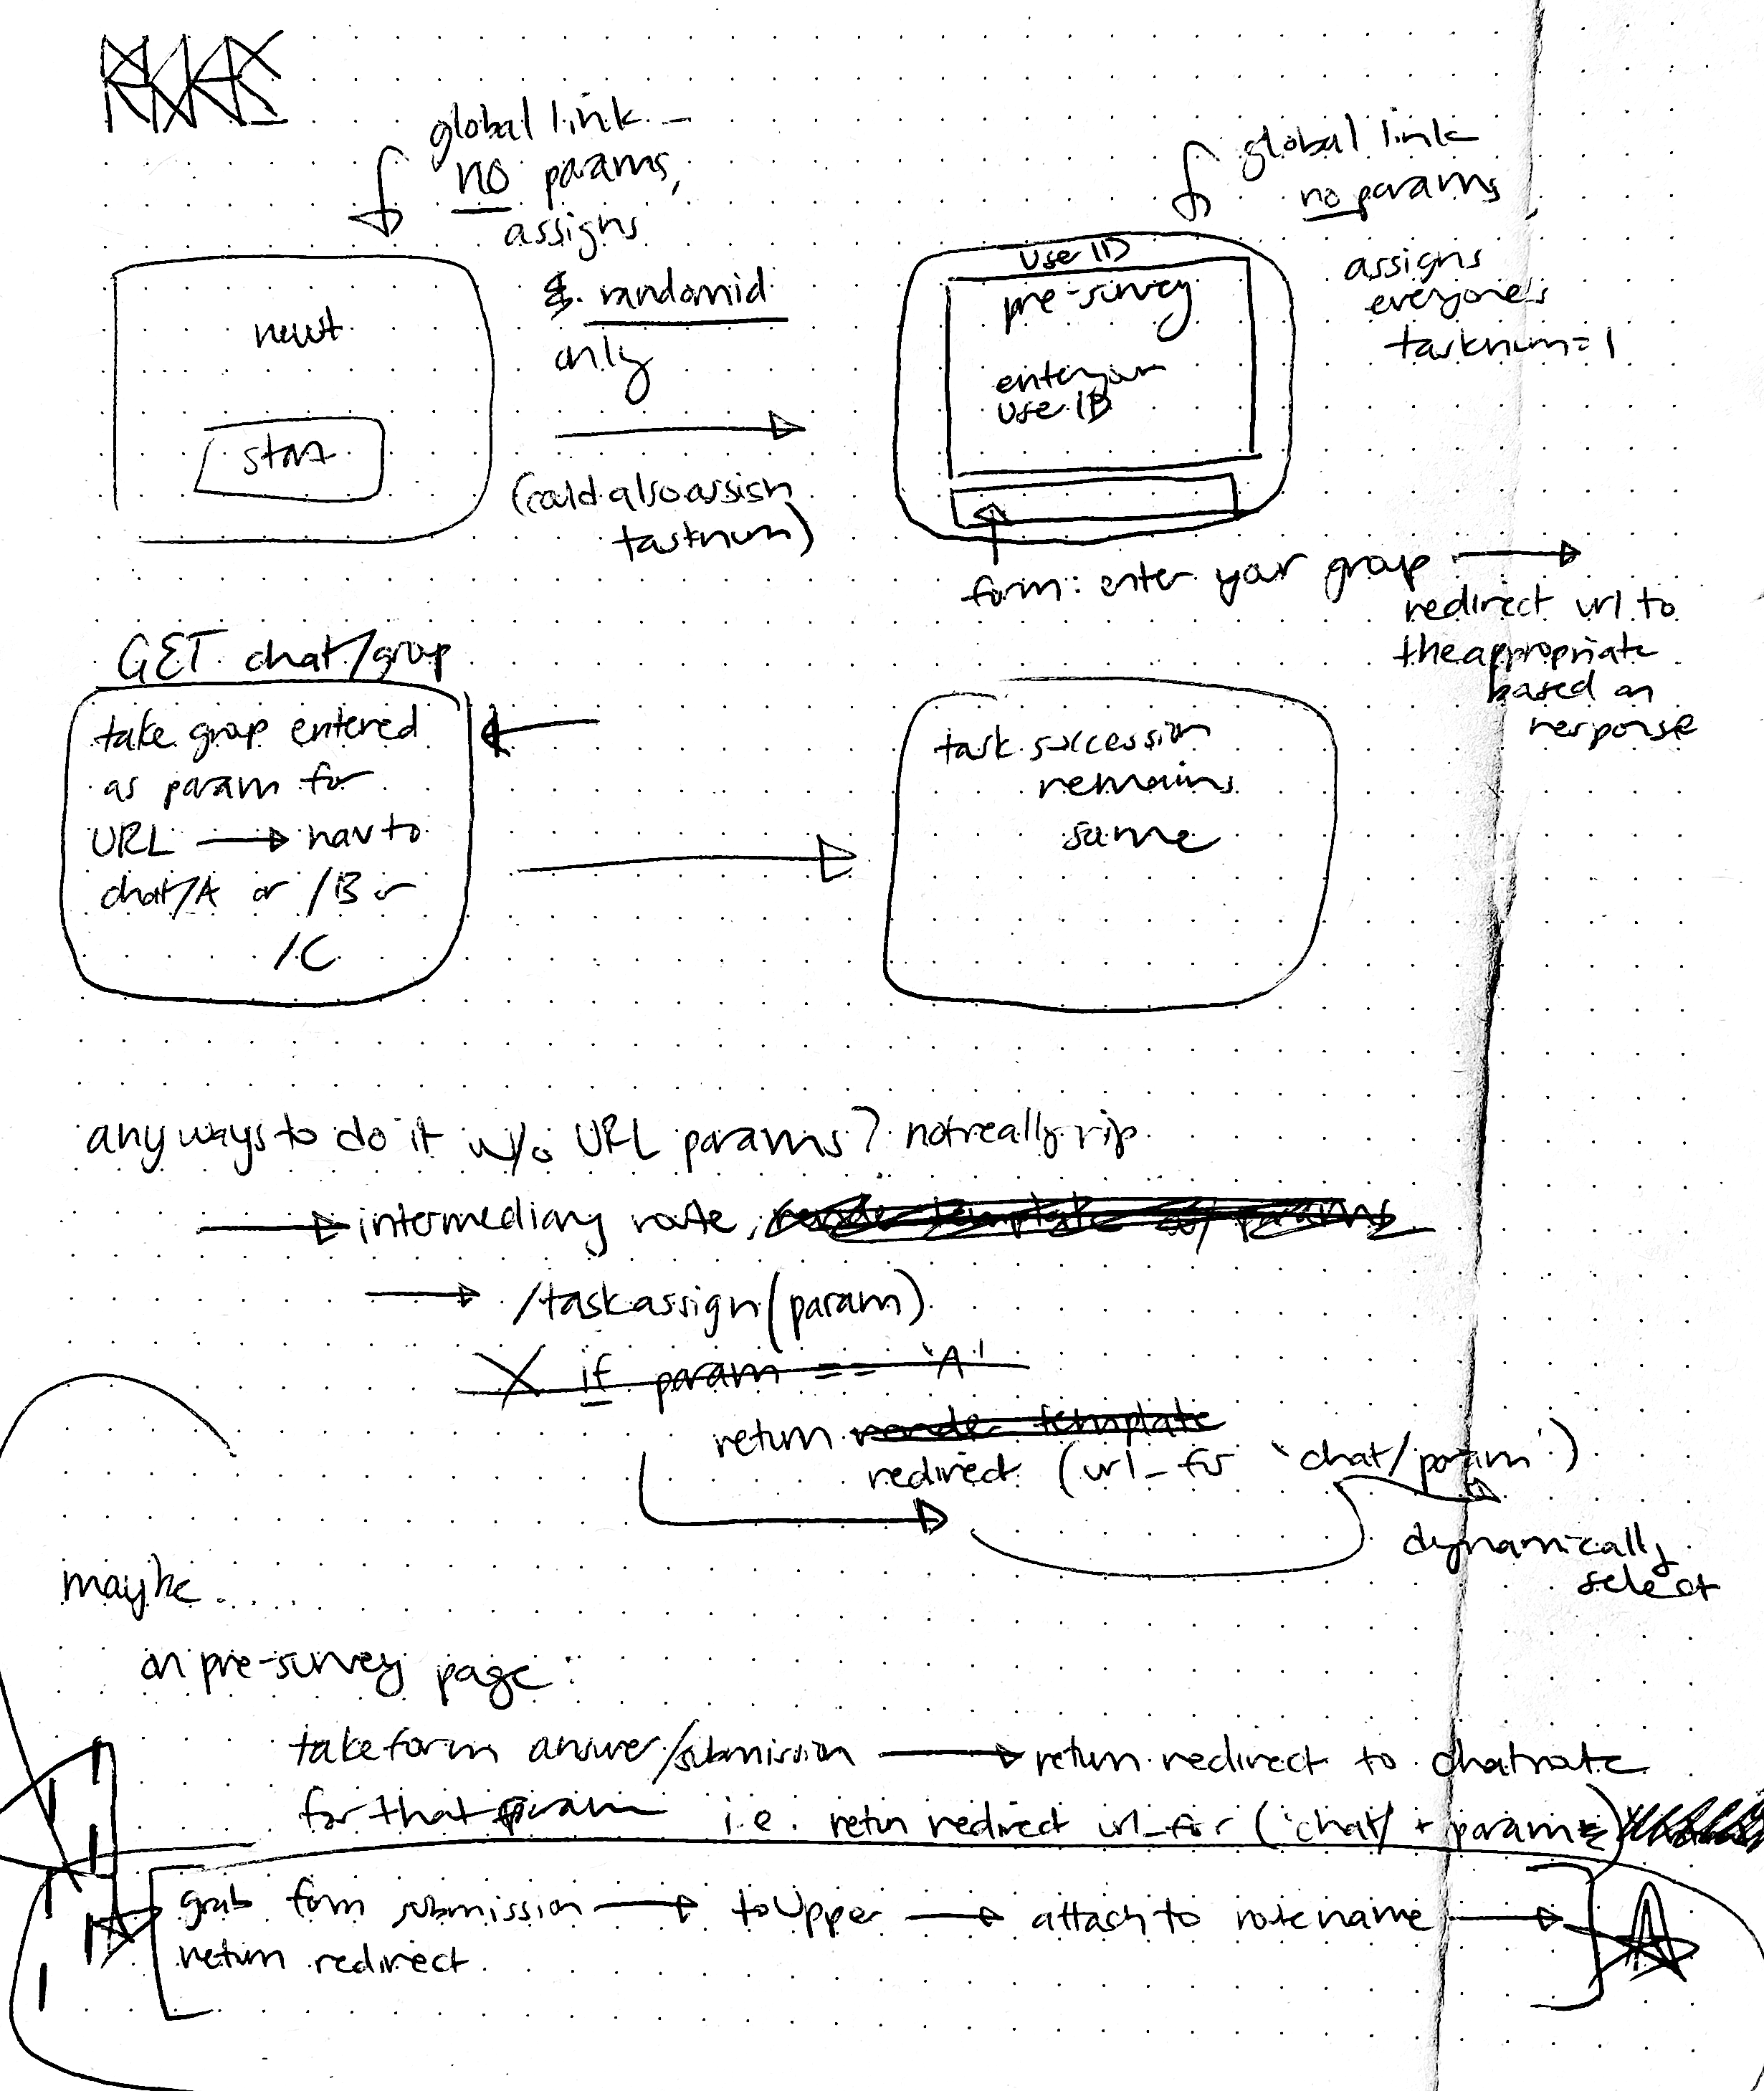 global link -
no params,
assigns
randomid
only
newt
start
(could also assign
tasknum)
global link
no params
assigns
everyone's
tasknum=1
User ID
pre-survey
enter your
User ID
form: enter your group
redirect url to
the appropriate
based on
response
GET chat/group
take group entered
as param for
URL → nav to
chat/A or /B or
/C
task succession
remains
same
any ways to do it w/o URL params? not really rip
→ intermediary route, render template w/ params
→ /taskassign(param)
X if param == 'A'
return render template
redirect (url_for 'chat/param')
dynamically
select
maybe....
on pre-survey page:
take form answer/submission → return redirect to chat route
for that param i.e. return redirect url_for ('chat/ + param)
grab form submission → toUpper → attach to route name →
return redirect